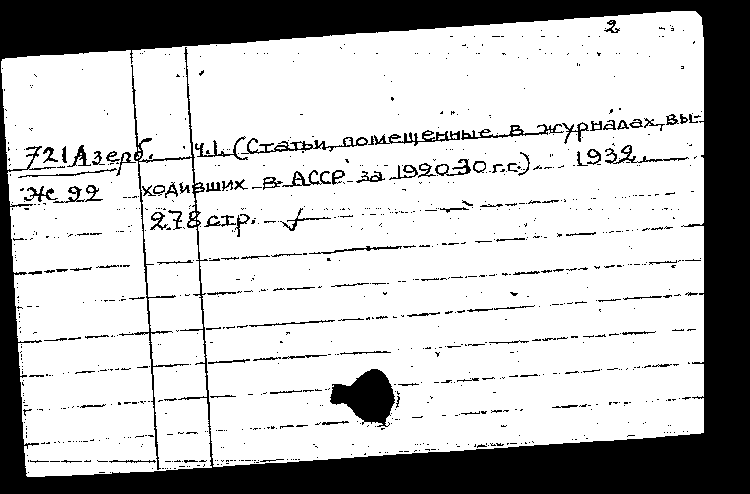 2
721 Азерб. ч.1. (Статьи, помещенные в журналах, вы-
Же 99 ходивших в АССР за 1920-30 г.г.). 1932.
278 стр. ✓